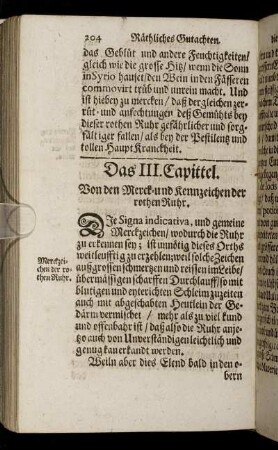 204 Räthliches Gutachten.
das Geblüt und andere Feuchtigkeiten/
gleich wie die grosse Hitz/ wenn die Sonn
in Syrio hauset/ den Wein in den Fässeren
commovirt trüb und unrein macht. Und
ist hiebey zu mercken/ daß dergleichen zer-
rüt- und anfechtungen deß Gemühts bey
dieser rothen Ruhr gefährlicher und sorg-
fältiger fallen/ als bey der Pestilentz und
tollen Haupt Kranckheit.
Das III. Capittel.
Von den Merck- und Kennzeichen der
rothen Ruhr.
DIe Signa indicativa, und gemeine
Merckzeichen/ wodurch die Ruhr
zu erkennen sey; ist unnötig dieses Orths
weitleufftig zu erzehlen; weil solche Zeichen
auß grossen schmertzen und reissen im Leibe/
übermässigen scharffen Durchlauff/ so mit
blutigen und eyterichten Schleim zu zeiten
auch mit abgeschabten Heutlein der Ge-
därm vermischet / mehr als zu viel kund
und offenbahr ist/ daß also die Ruhr anje-
tzo auch von Unverständigen leichtlich und
genug kan erkandt werden.
Merckzei-
chen der ro-
then Ruhr.
Weiln aber dies Elend bald in den e-
bern